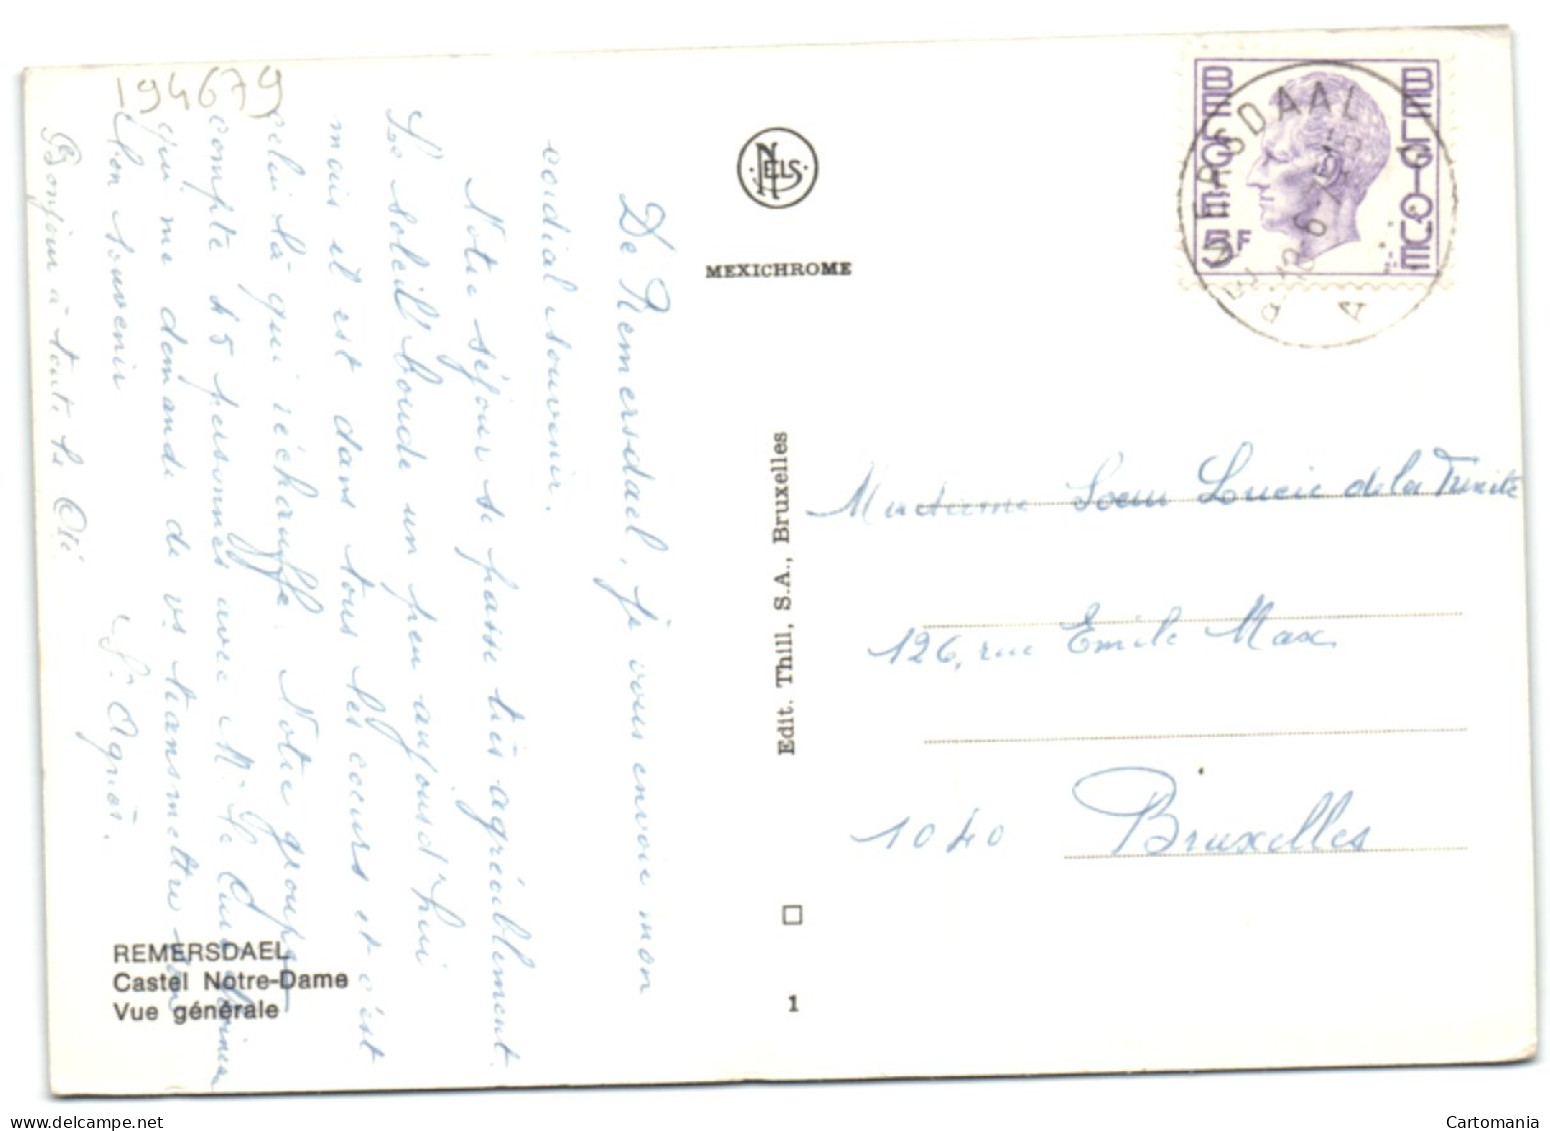 194679
De Remersdael, je vous envoie mon
cordial souvenir.
Notre séjour se passe très agréablement.
Le soleil boude un peu aujourd'hui
mais il est dans tous les coeurs et c'est
celui là qui réchauffe. Notre groupe
compte 45 personnes avec Mr le Curé
qui me demande de vs transmettre son
bon souvenir
Sr Agnès.
Bonjour à toute la
NELS
MEXICHROME
Edit. Thill, S.A., Bruxelles
1
REMERSDAEL
Castel Notre-Dame
Vue générale
BELGIE BELGIQUE
5F
Madame Soeur Lucie de la Trinité
126, rue Emile Max
1040 Bruxelles
Cartomania